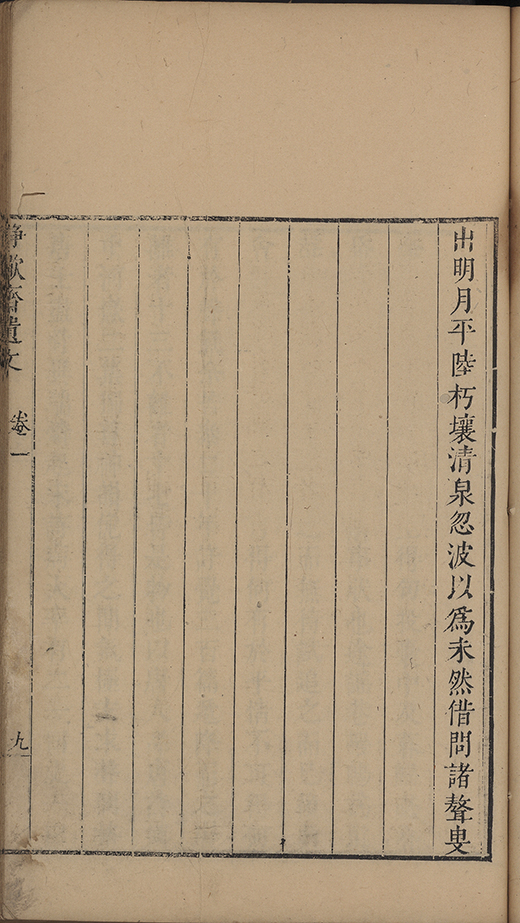 出明月平陸朽壤清泉忽波以為未然借問諸聱叟
靜歗齋遺文
卷一
九